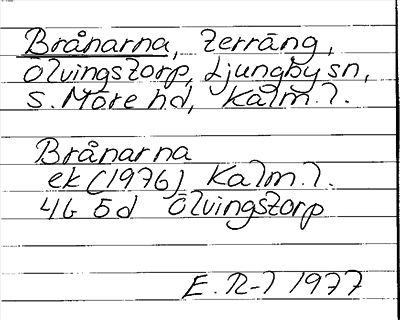 Brånarna, terräng,
Ölvingstorp, Ljungby sn,
S. Möre hd, Kalm. l.
Brånarna
ek (1976) Kalm. l.
4G 5d Ölvingstorp
E. R-l 1977